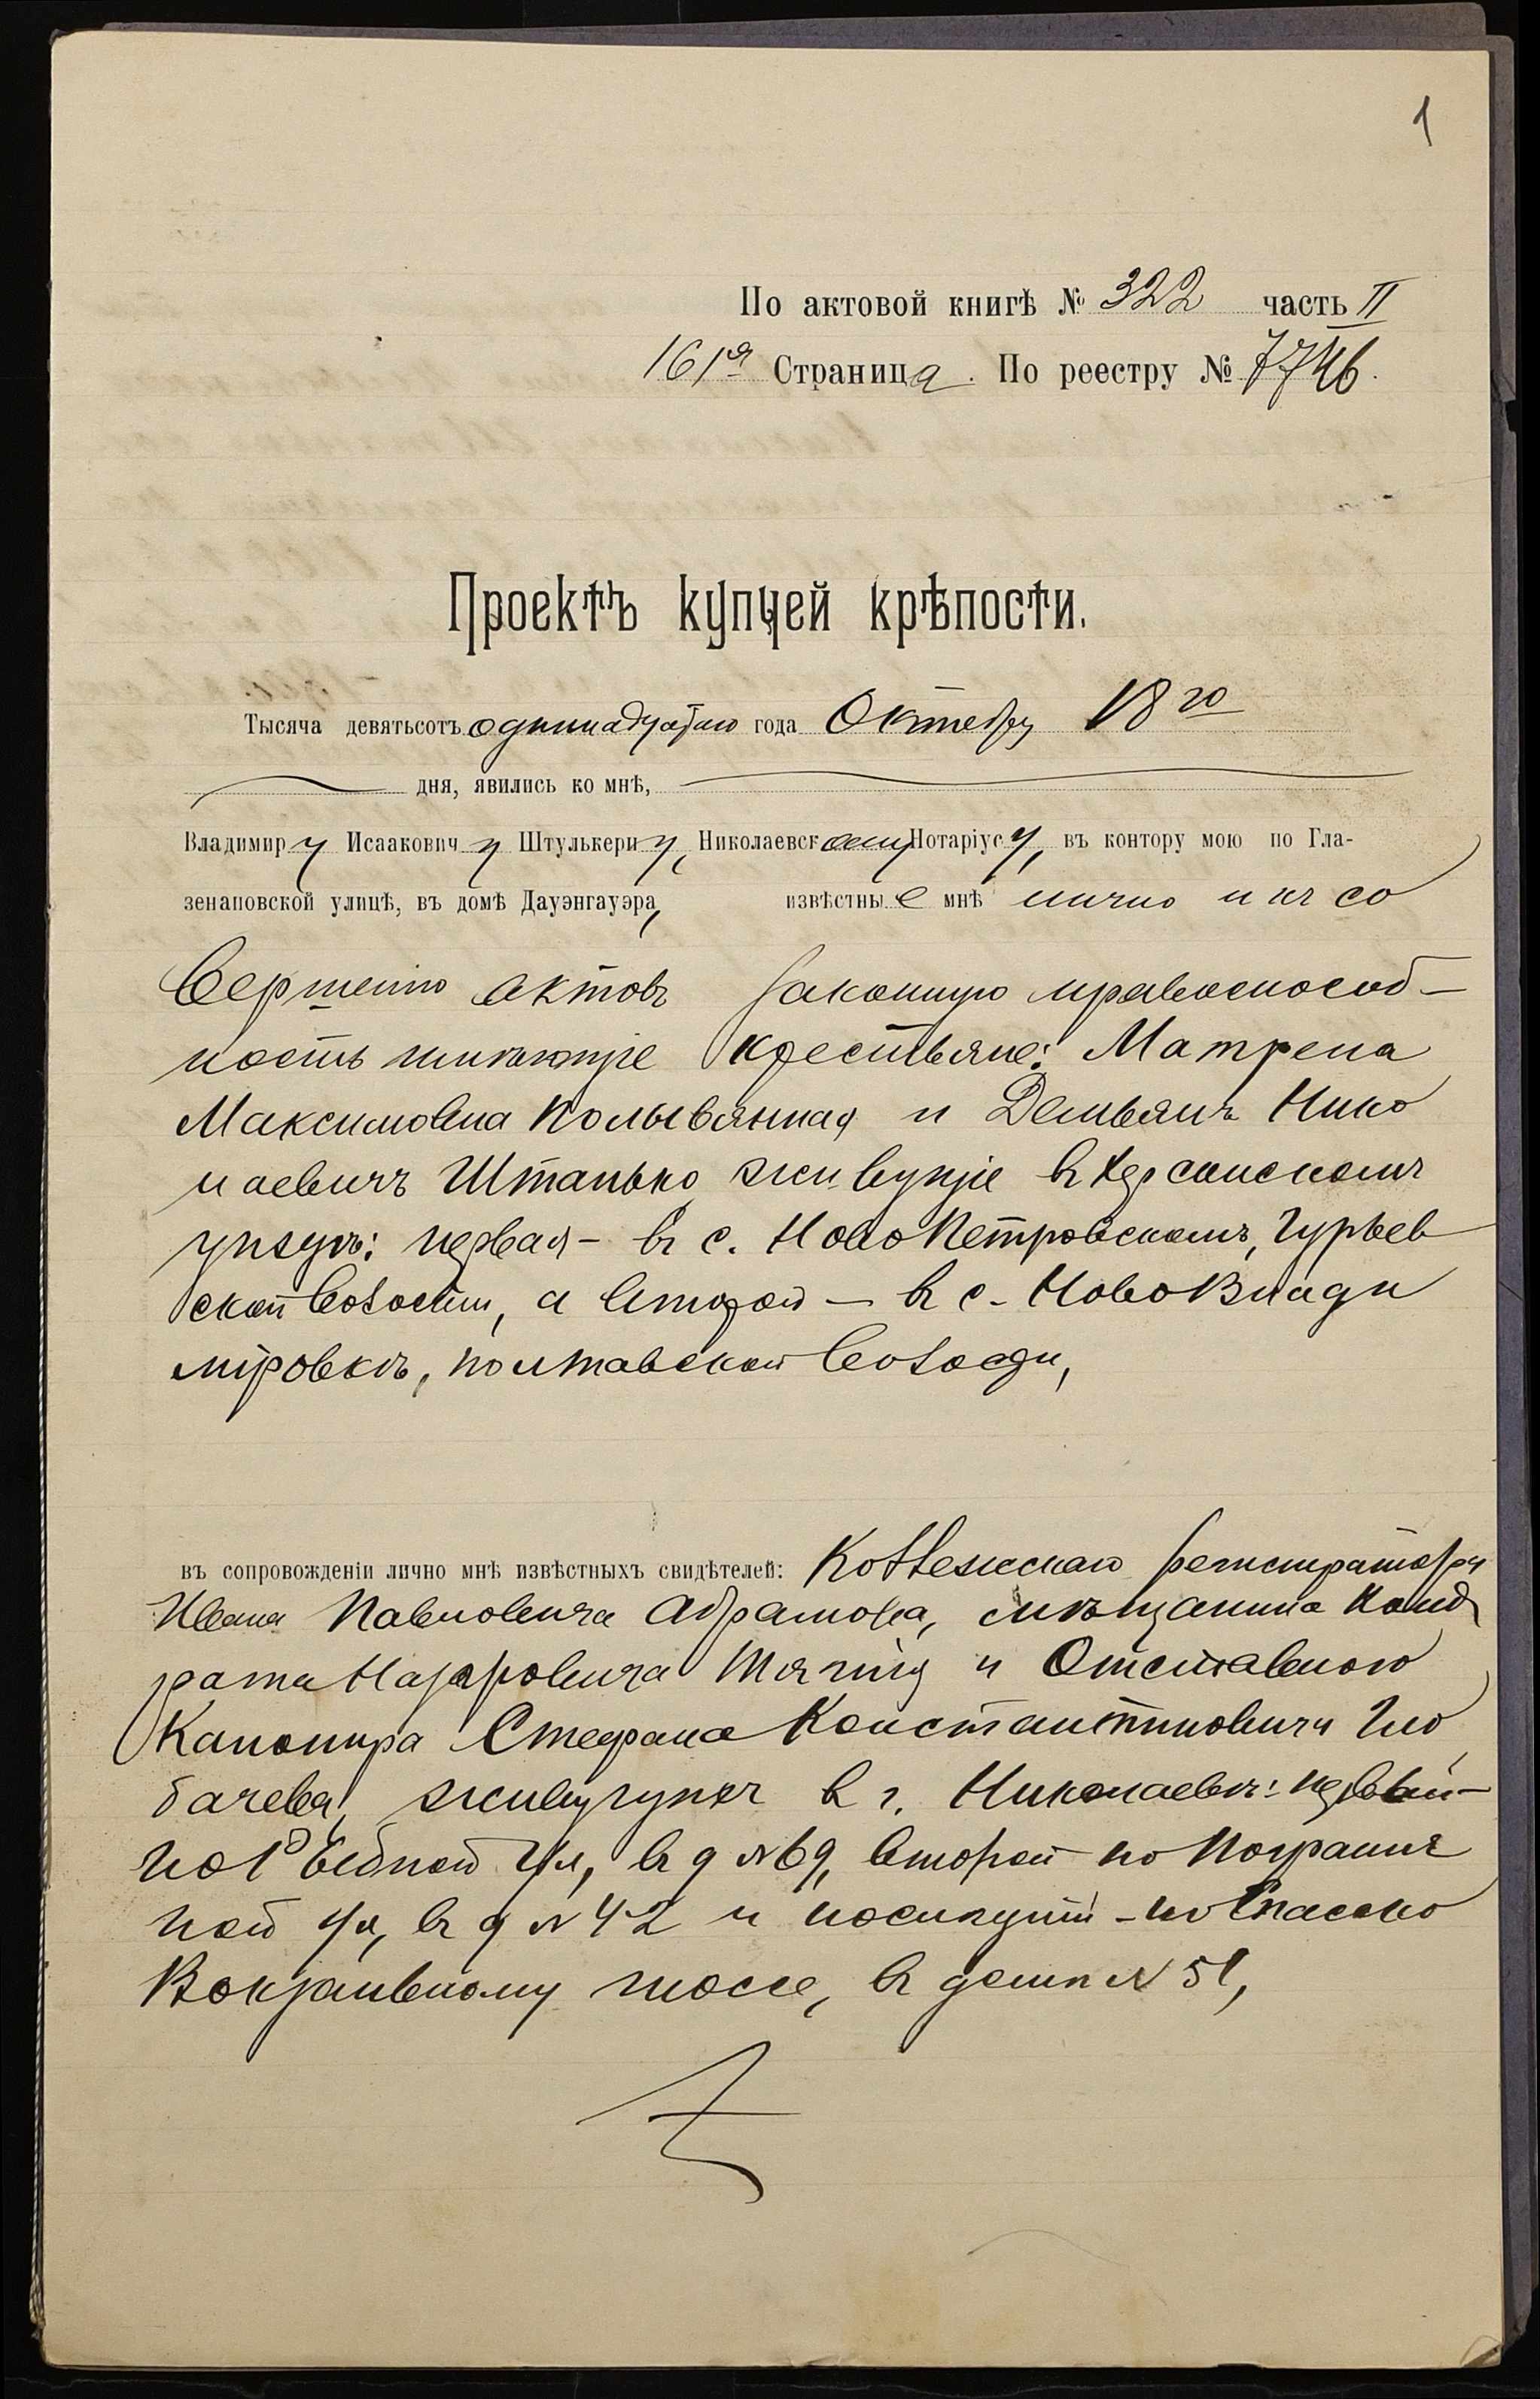 1
По актовой книгѣ № 322 часть II
161я Страница. По реестру № 7746.
Проектъ купчей крѣпости.
Тысяча девятьсотъ одиннадцатаго года Октября 18го
дня, явились ко мнѣ,
Владимиру Исааковичу Штулькерцу, Николаевскому Нотаріусу, въ контору мою по Гла-
зенаповской улицѣ, въ домѣ Дауэнгауэра, извѣстные мнѣ лично и къ со
вершенію актовъ законную правоспособ-
ность имѣющіе крестьяне: Матрена
Максимовна Колывянная и Демьянъ Нико
лаевичъ Штанько живущіе въ Херсонскомъ
уѣздѣ: первая - въ с. НовоПетровскомъ, Гурьев
ской волости, а второй - въ с. НовоВлади
міровкѣ, полтавской волости,
въ сопровожденіи лично мнѣ извѣстныхъ свидѣтелей: Коллежскаго регистратора
Ивана Павловича Абрамова, мѣщанина Конд
рата Назаровича и Отставного
Канонира Стефана Константиновича Гло
бачева, живущихъ въ г. Николаевѣ: первый -
по ул, въ д № 69, второй по Погранич
ной ул, въ д № 42 и послѣдній - по Спасско
Вокзальному шоссе, въ домѣ № 51,